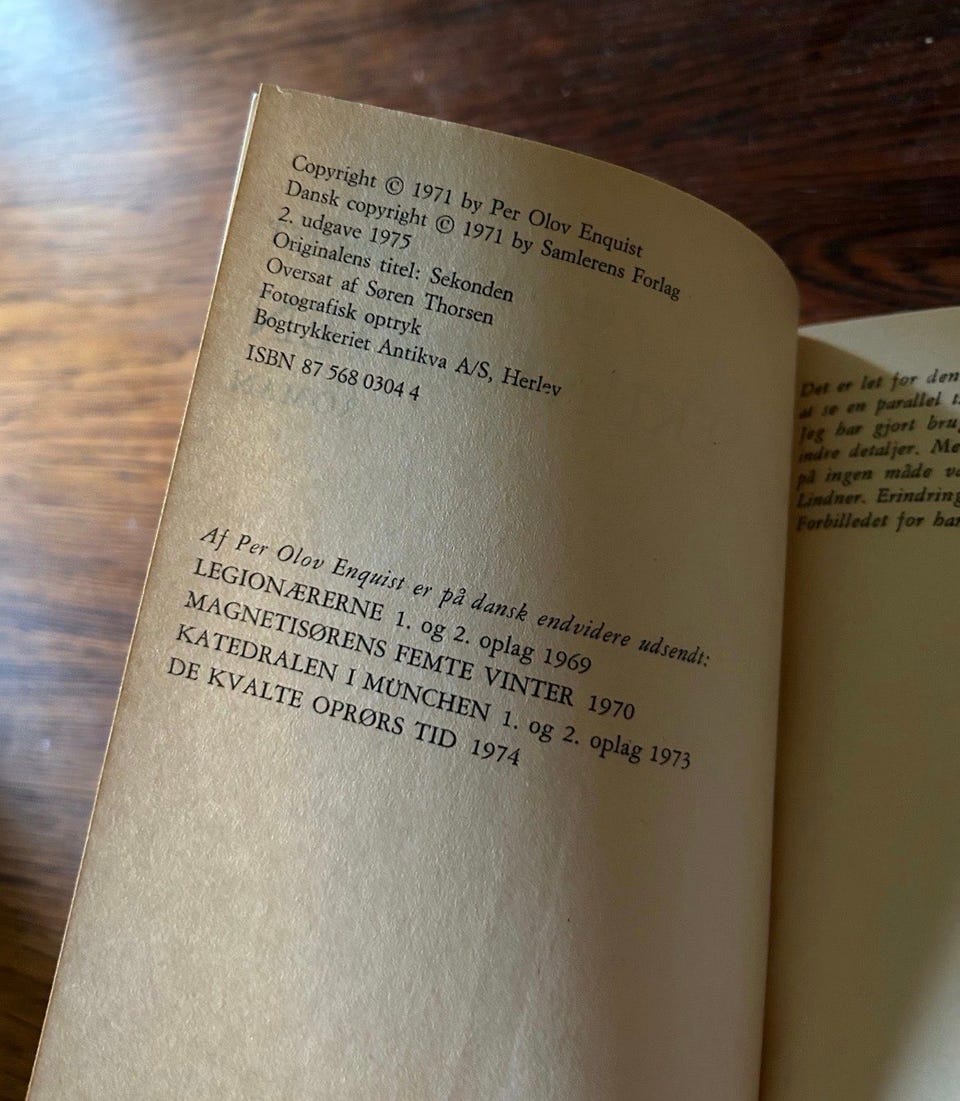 Copyright © 1971 by Per Olov Enquist
Dansk copyright © 1971 by Samlerens Forlag
2. udgave 1975
Originalens titel: Sekonden
Oversat af Søren Thorsen
Fotografisk optryk
Bogtrykkeriet Antikva A/S, Herlev
ISBN 87 568 0304 4
Af Per Olov Enquist er på dansk endvidere udsendt:
LEGIONÆRERNE 1. og 2. oplag 1969
MAGNETISØRENS FEMTE VINTER 1970
KATEDRALEN I MÜNCHEN 1. og 2. oplag 1973
DE KVALTE OPRØRS TID 1974
Det er let for den
at se en parallel
Jeg har gjort
indre detaljer.
på ingen måde
Lindner.
Forbilledet for